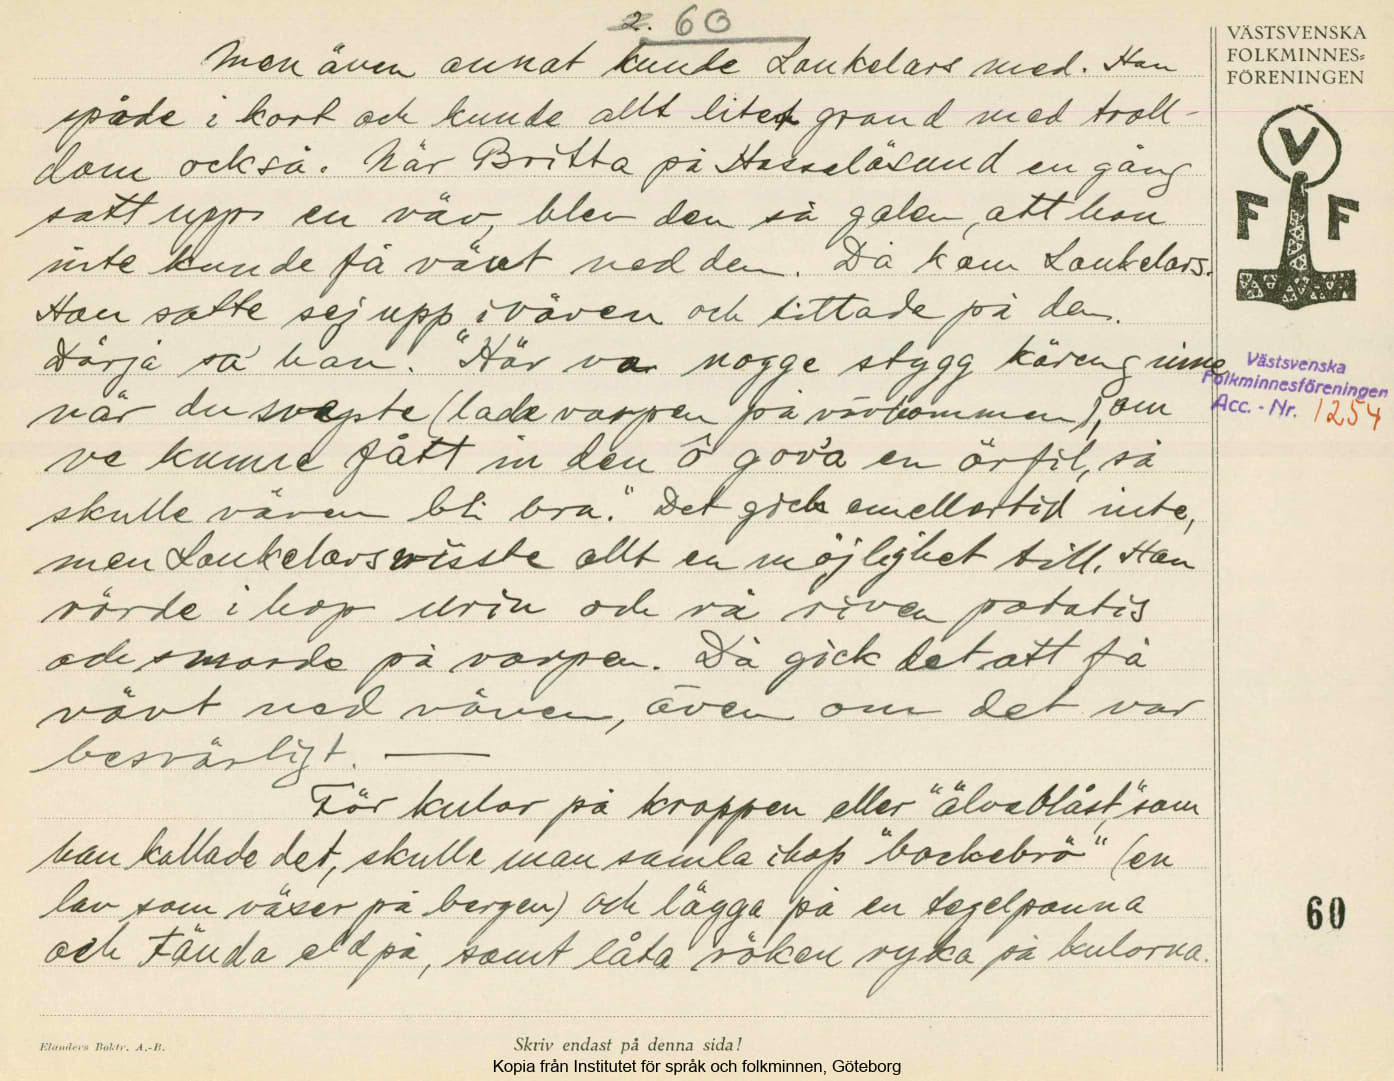 2. 60
Men även annat kunde Lonkelars med. Han
spåde i kort och kunde allt litet grand med troll-
dom också. När Britta på Hasselösund en gång
satt upp en väv, blev den så galen, att hon
inte kunde få vävt ned den. Då kom Lonkelars.
Han satte sej upp i väven och tittade på den.
Därpå sa' han. "Här va nogge stygg käreng inne
när du svepte (lade varpen på vävbommen), om
ve kunne fått in den ô gov'a en örfil, så
skulle väven bli bra." Det gick emellertid inte,
men Lonkelars visste allt en möjlighet till. Han
rörde i hop urin och rå riven potatis
och smorde på varpen. Då gick det att få
vävt ned väven, även om det var
besvärligt. —
För kulor på kroppen eller "älvablåst," som
han kallade det, skulle man samla ihop "bockebrö" (en
lav som växer på bergen) och lägga på en tegelpanna
och tända eld på, samt låta röken ryka på kulorna.
VÄSTSVENSKA
FOLKMINNES=
FÖRENINGEN
V
F F
Västsvenska
Folkminnesföreningen
Acc. - Nr. 1254
60
Elanders Boktr. A.-B.
Skriv endast på denna sida!
Kopia från Institutet för språk och folkminnen, Göteborg